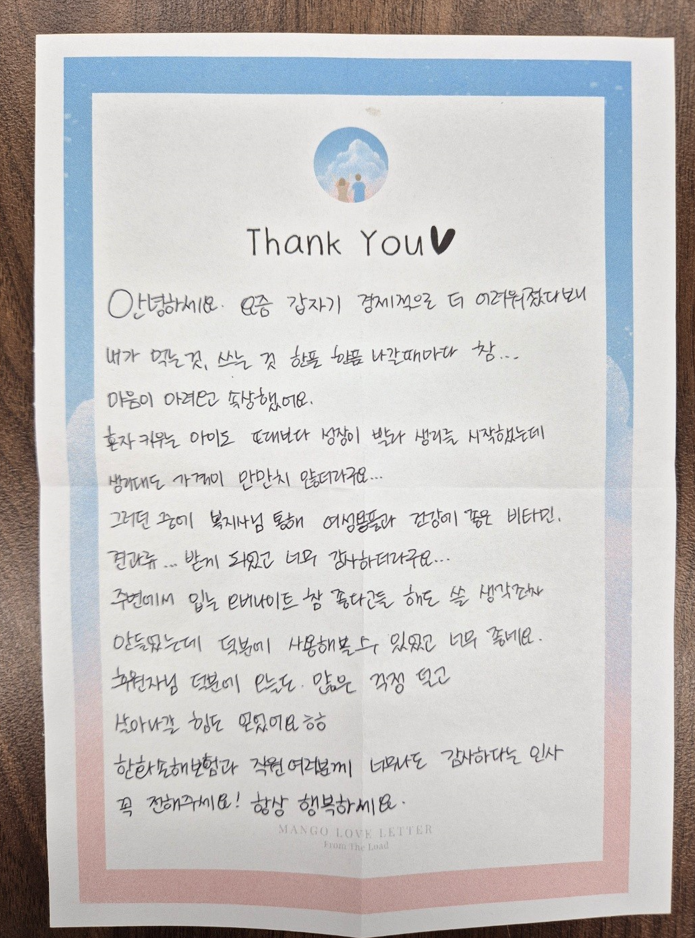 Thank You
안녕하세요. 요즘 갑자기 경제적으로 더 어려워졌다보니
내가 먹는것, 쓰는 것 한푼 한푼 나갈때마다 참...
마음이 아려오고 속상했어요.
혼자 키우는 아이도 또래보다 성장이 빨라 생리를 시작했는데
생리대도 가격이 만만치 않더라구요...
그러던 중에 복지사님 통해 여성용품과 건강에 좋은 비타민,
견과류... 받게 되었고 너무 감사하더라구요...
주변에서 입는 오버나이트 참 좋다고들 해도 쓸 생각조차
안들었는데 덕분에 사용해볼 수 있었고 너무 좋네요.
후원자님 덕분에 오늘도 많은 걱정 덜고
살아나갈 힘도 얻었어요 ㅎㅎ
한화손해보험과 직원여러분께 너무나도 감사하다는 인사
꼭 전해주세요! 항상 행복하세요.
MANGO LOVE LETTER
From The Load